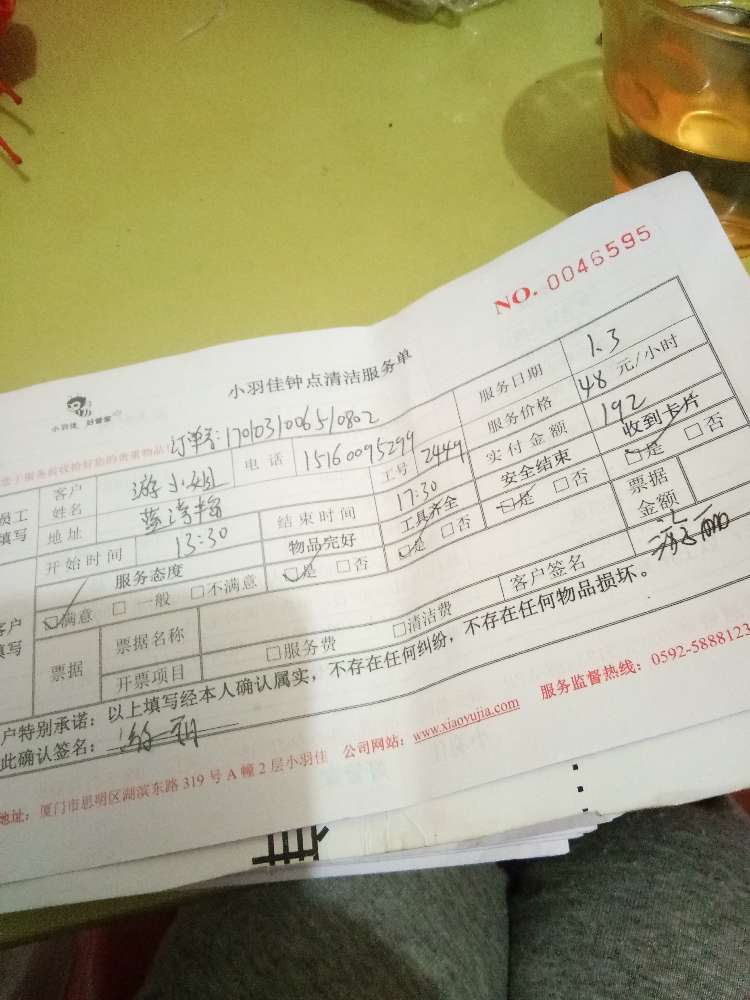 NO. 0046595
小羽佳 好管家
小羽佳钟点清洁服务单
订单号:1701031006510802
服务日期 1.3
客户姓名 游小姐 电话 15160095299 工号 2449 服务价格 48 元/小时
地址
实付金额 192
开始时间 13:30 结束时间 17:30 安全结束 收到卡片
服务态度 物品完好 工具齐全 是 否 是 否
满意 一般 不满意 是 否 是 否
票据 票据名称 客户签名 票据金额
开票项目 服务费 清洁费
户特别承诺:以上填写经本人确认属实,不存在任何纠纷,不存在任何物品损坏。
此确认签名:
地址:厦门市思明区湖滨东路 319 号 A 幢 2 层小羽佳 公司网站:www.xiaoyujia.com 服务监督热线:0592-5888123